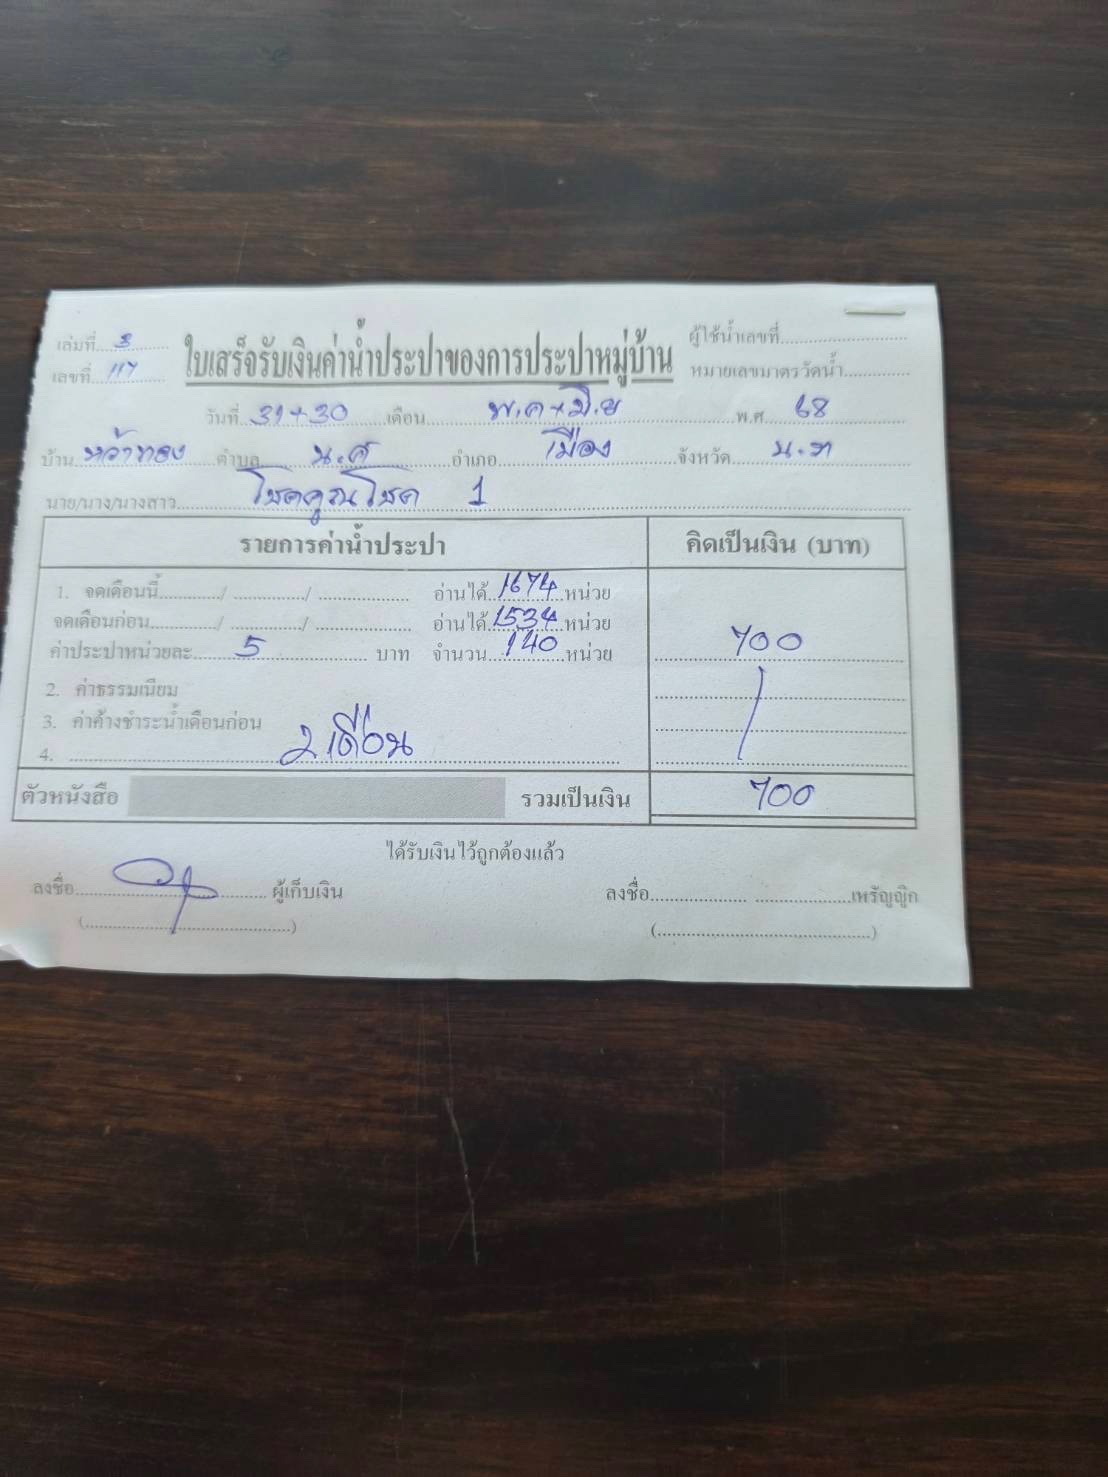 เล่มที่ 3 ใบเสร็จรับเงินค่าน้ำประปาของการประปาหมู่บ้าน ผู้ใช้น้ำเลขที่
เลขที่ 117 หมายเลขมาตรวัดน้ำ
วันที่ 31+30 เดือน พ.ค+มิ.ย พ.ศ 68
บ้าน หว้าทอง ตำบล น.ศ อำเภอ เมือง จังหวัด
นาย/นาง/นางสาว โชคคูณโชค 1
รายการค่าน้ำประปา คิดเป็นเงิน (บาท)
1. จดเดือนนี้ / / อ่านได้ 1674 หน่วย
จดเดือนก่อน / / อ่านได้ 1534 หน่วย
ค่าประปาหน่วยละ 5 บาท จำนวน 140 หน่วย 700
2. ค่าธรรมเนียม
3. ค่าค้างชำระน้ำเดือนก่อน
4. 2 เดือน
ตัวหนังสือ รวมเป็นเงิน 700
ได้รับเงินไว้ถูกต้องแล้ว
ลงชื่อ ผู้เก็บเงิน ลงชื่อ เหรัญญิก
( ) ( )